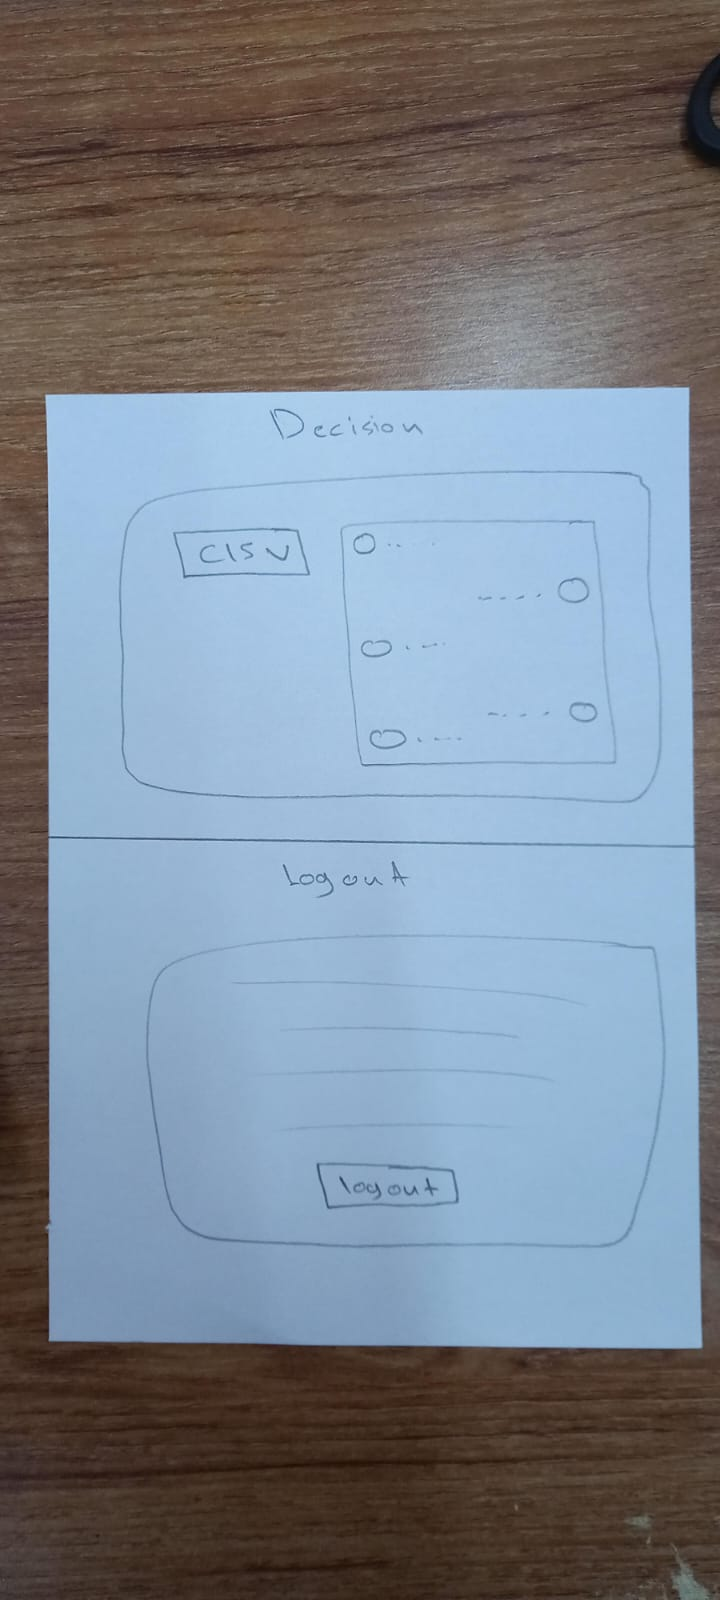 Decision
CISV
Logout
logout